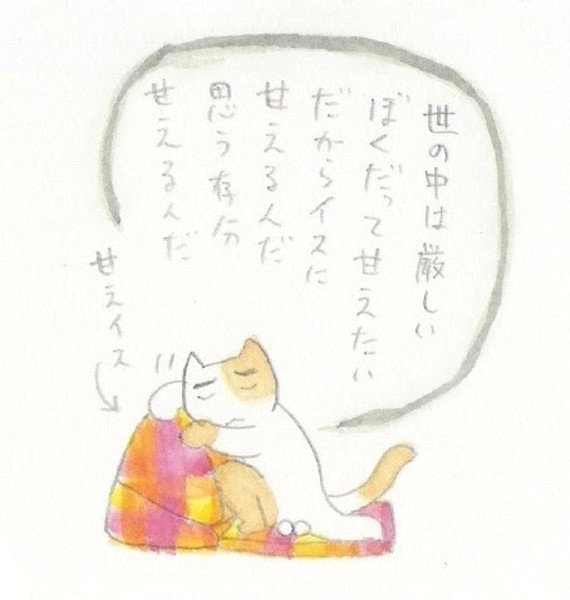 世の中は厳しい
ぼくだって甘えたい
だからイスに
甘えるんだ
思う存分
甘えるんだ
甘えイス